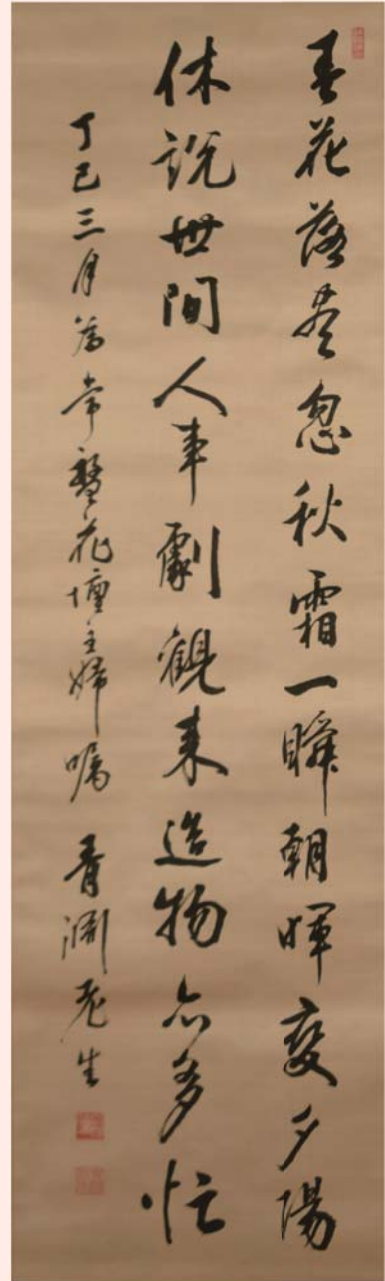 春花落尽忽秋霜一瞬朝暉変夕陽
休説世間人事劇観来造物亦多忙
丁巳三月為常盤花壇主婦嘱 青淵老生